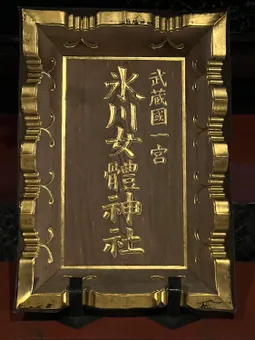 武蔵國一宮
氷川女體神社